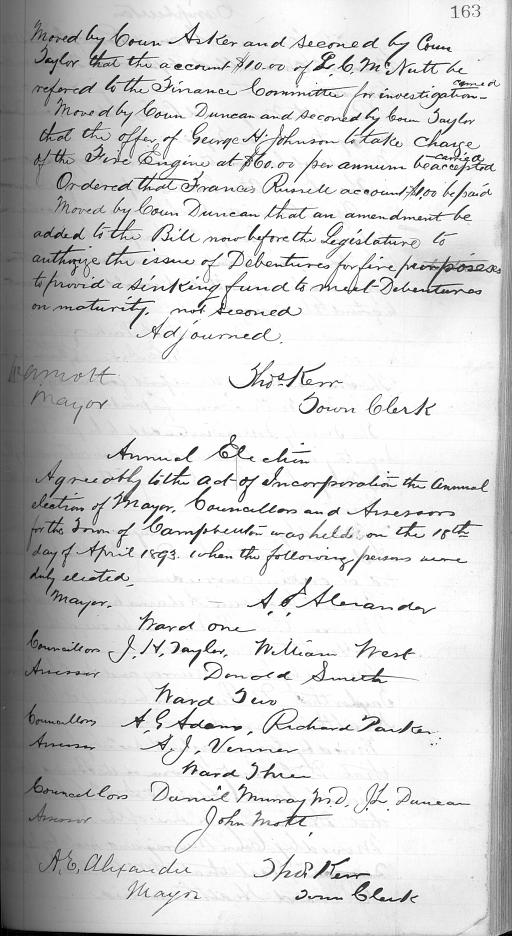 163
Moved by Coun Asker and seconed by Coun
Taylor that the account $10.00 of L. C. McNutt be
refered to the Finance Committee for investigation – carried
Moved by Coun Duncan and seconed by Coun Taylor
that the offer of George H. Johnson to take charge
of the Fire Engine at $60.00 per annum be accepted carried
Ordered that Francis Russell account $1.00 be paid
Moved by Coun Duncan that an amendment be
added to the Bill now before the Legislature to
authorize the issue of Debentures for fire purposes
to provid a sinking fund to meet Debentures
on maturity. not seconed
Adjourned.
Mayor
Thos Kerr
Town Clerk
Annual Election
Agreeably to the act of Incorporation the Annual
election of Mayor, Councillors and Assessors
for the Town of Campbellton was held on the 18th
day of April 1893. when the following persons were
duly elected,
Mayor. – A. E. Alexander
Ward one
Councillors J. H. Taylor, William West
Assessor Donald Smith
Ward Two
Councillors A. G. Adams, Richard Parker
Assessor A. J. Venner
Ward Three
Councillors Daniel Murray M.D. J. L. Duncan
Assessor John Mott
A. E. Alexander
Mayor
Thos Kerr
Town Clerk